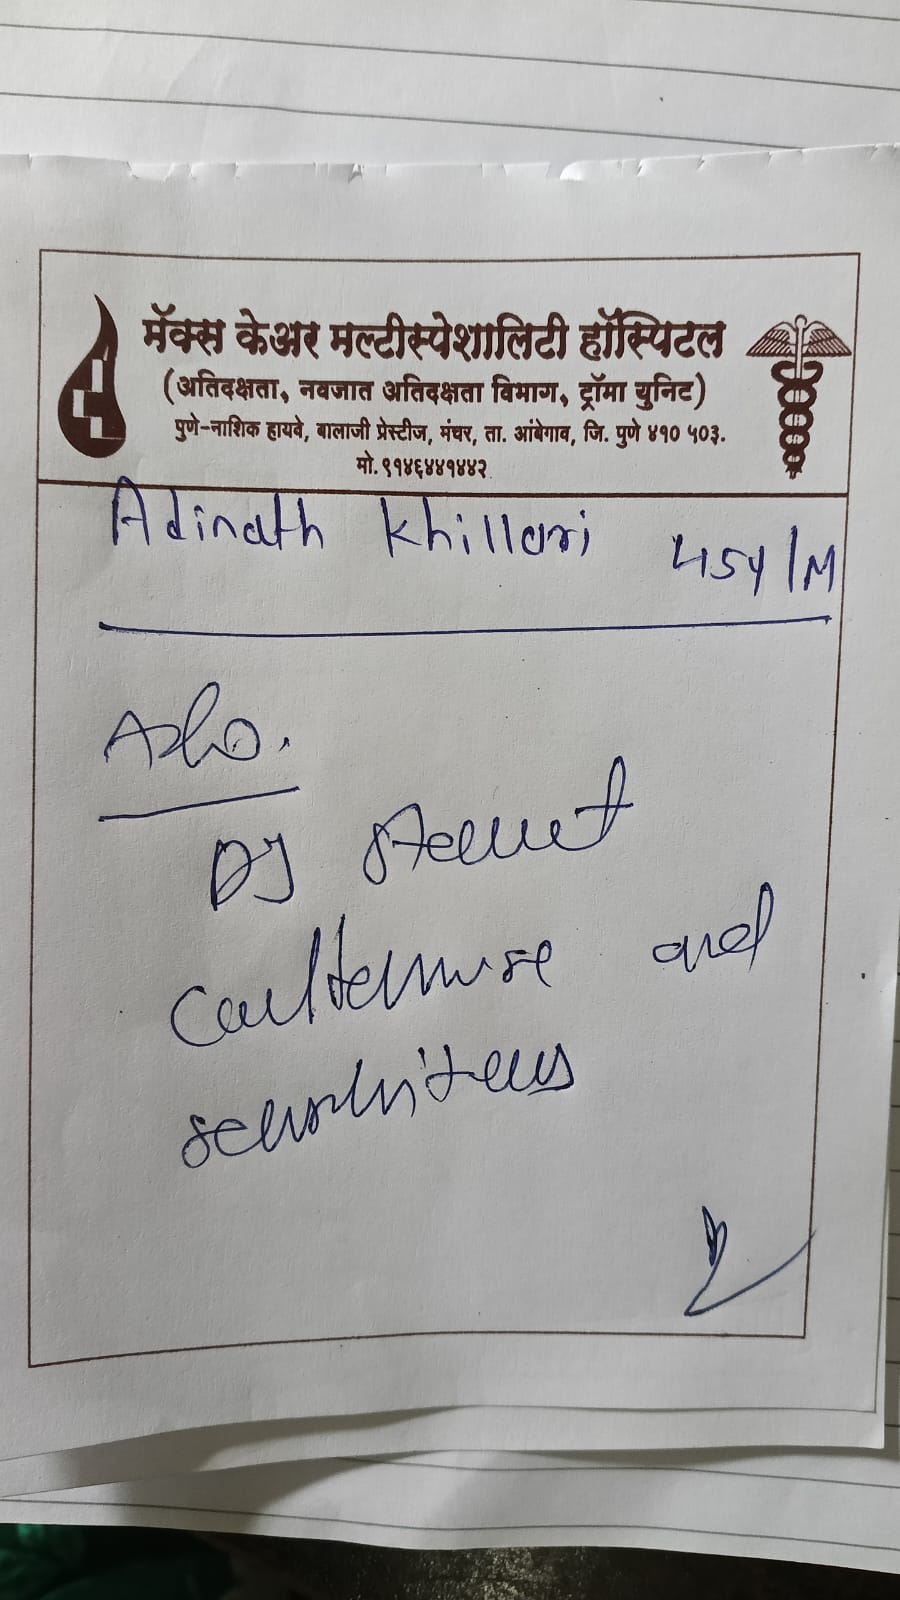 मॅक्स केअर मल्टीस्पेशालिटी हॉस्पिटल
(अतिदक्षता, नवजात अतिदक्षता विभाग, ट्रॉमा युनिट)
पुणे-नाशिक हायवे, बालाजी प्रेस्टीज, मंचर, ता. आंबेगाव, जि. पुणे ४१० ५०३.
मो.९१४६४४१४४२
Adinath Khillari 45y/M
DJ
and